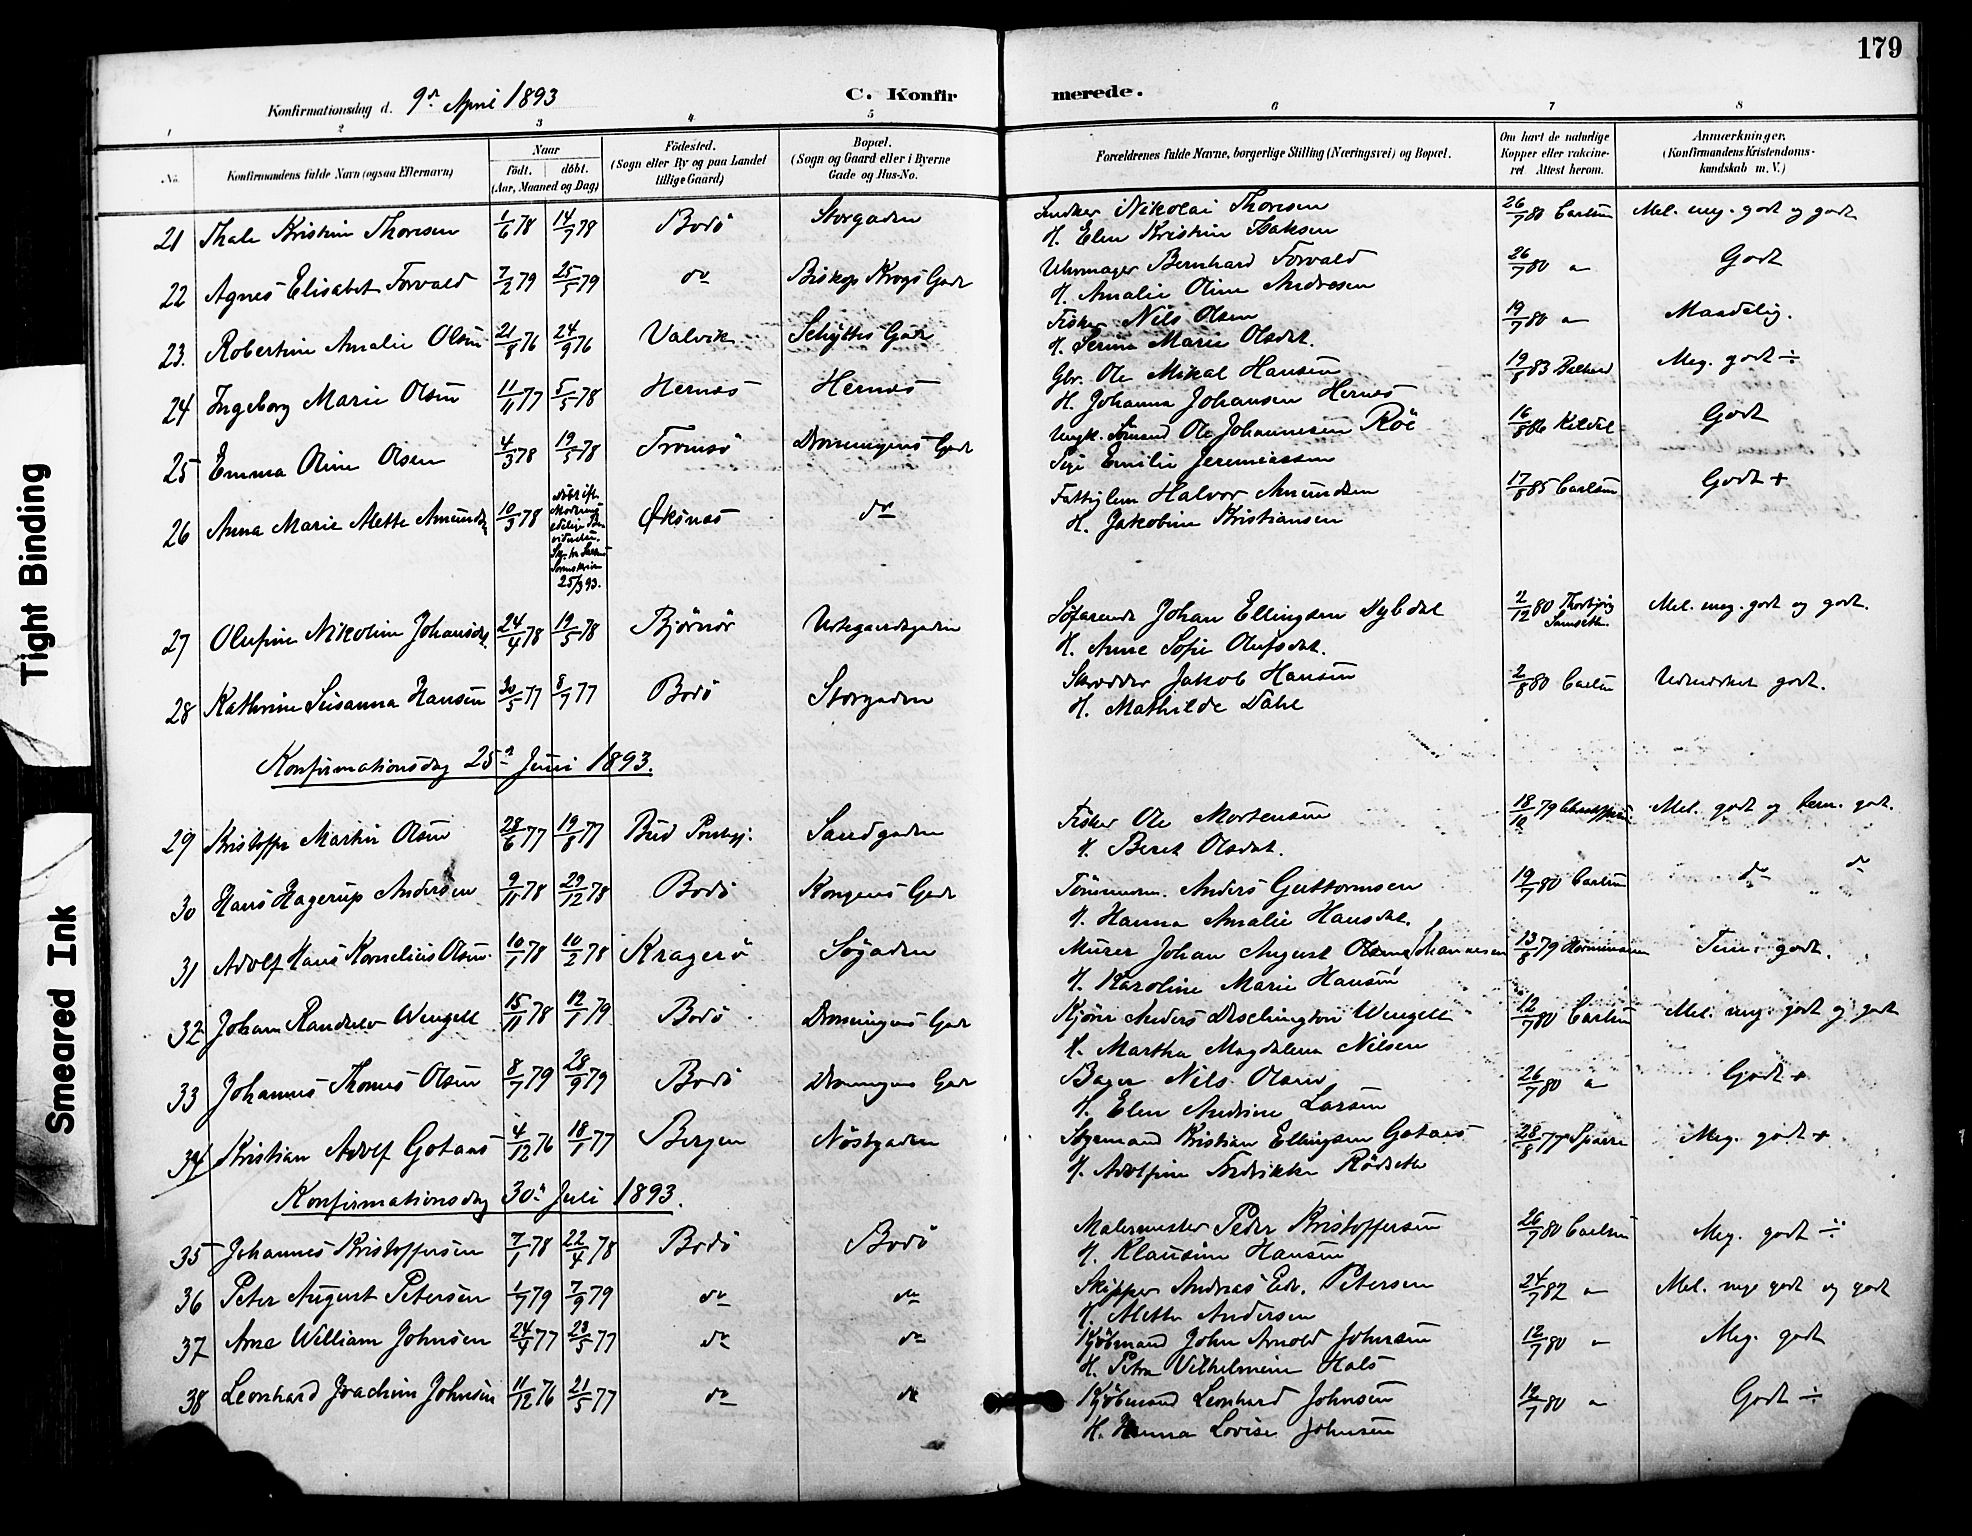 179
Konfirmationsdag d. 9de April 1893
C. Konfirmerede.
1 2 3 4 5 6 7 8
No.
Konfirmandens fulde Navn (ogsaa Efternavn)
Naar
födt. döbt.
(Aar, Maaned og Dag)
Födested.
(Sogn eller By og paa Landet
tillige Gaard.)
Bopæl.
(Sogn og Gaard eller i Byerne
Gade og Hus-No.
Forældrenes fulde Navne, borgerlige Stilling (Næringsvei) og Bopæl.
Om havt de naturlige
Kopper eller vakcine-
ret Attest herom.
Anmærkninger.
(Konfirmandens Kristendoms-
kundskab m. V.)
21 Thale Kristine Thoresen 1/6 78 14/7 78 Bodö Storgaden Snedker Nikolai Thoresen 26/7 80 Carlsen Mel. meg. godt og godt
H. Elen Kristine Isaksen
22 Agnes Elisabet Torvald 7/2 79 25/5 79 do Biskop Krogs Gade Uhrmager Bernhard Torvald 26/7 80 " Godt
H. Amalie Oline Andresen
23. Robertine Amalie Olsen 21/8 76 24/9 76 Valvik Schyttes Gade Fisker Nils Olsen 19/7 80 " Maadelig.
H. Serine Marie Olsdat.
24 Ingeborg Marie Olsen 11/11 77 5/5 78 Hernes Hernes Gbr. Ole Mikal Hansen 19/8 83 Meg. godt ÷
H. Johanna Johansen Hernes
25 Emma Oline Olsen 4/3 78 19/5 78 Tromsö Dronningens Gade Ungk. Sömand Ole Johannesen Röe 16/8 86 Godt
Pige Emilie Jeremiassen
26 Anna Marie Alette Amundsen 10/3 78 Øksnes do Fattiglem Halvor Amundsen 17/8 85 Carlsen Godt +
25/3 93.
H. Jakobine Kristiansen
27 Olufine Nikoline Johansdat. 24/4 78 19/5 78 Bjørnør Söfarende Johan Ellingsen Dybdal 2/12 80 Mel. meg. godt og godt.
H. Anne Sofie Olufsdat.
28 Kathrine Susanna Hansen 30/5 77 8/7 77 Bodö Storgaden Skrædder Jakob Hansen 2/8 80 Carlsen Udmærket godt.
H. Mathilde Dahl
Konfirmationsdag 25de Juni 1893.
29 Kristoffer Martin Olsen 28/6 77 19/8 77 Bud Præstegj. Sandgaden Fisker Ole Mortensen 18/10 79 Mel. godt og tem. godt.
H. Beret Olsdat.
30 Hans Hagerup Andersen 9/11 78 29/12 78 Bodö Kongens Gade Tömmerm. Anders Guttormsen 19/7 80 Carlsen do do
H. Hanna Amalie Hansdat.
31 Adolf Hans Kornelius Olsen 10/1 78 10/2 78 Kragerö Søgaden Murer Johan August Olsen Johannesen 13/8 79 Tem. godt.
H. Karoline Marie Hansen
32 Johan Randulv Wengell 15/11 78 12/1 79 Bodö Dronningens Gade Kjører Anders Dischington Wengell 12/7 80 Carlsen Mel. meg. godt og godt
H. Martha Magdalena Nilsen
33 Johannes Thomas Olsen 8/7 79 28/9 79 Bodö Dronningens Gade Bager Nils Olsen 26/7 80 " Godt +
H. Elen Andrine Larsen
34 Kristian Adolf Gotaas 4/12 76 18/1 77 Bergen Nöstgaden Søgemand Kristian Ellingsen Gotaas 28/8 77 Sparre Meg. godt +
H. Adolfine Fredrikke Rödseth
Konfirmationsdag 30de Juli 1893.
35 Johannes Kristoffersen 7/1 78 22/4 78 Bodö Bodö Malermester Peder Kristoffersen 26/7 80 Carlsen Meg. godt ÷
H. Klausine Hansen
36 Peter August Petersen 1/7 79 7/9 79 do do Skipper Andreas Edv. Petersen 24/7 82 " Mel. meg godt og godt
H. Alette Andersen
37 Arne William Johnsen 24/4 77 23/5 77 do do Kjöbmand John Arnold Johnsen 12/7 80 " Meg. godt
H. Petra Vilhelmine Hals
38 Leonhard Joachim Johnsen 11/12 76 21/5 77 do do Kjöbmand Leonhard Johnsen 12/7 80 " Godt ÷
H. Hanna Lovise Johnsen
Tight Binding
Smeared Ink